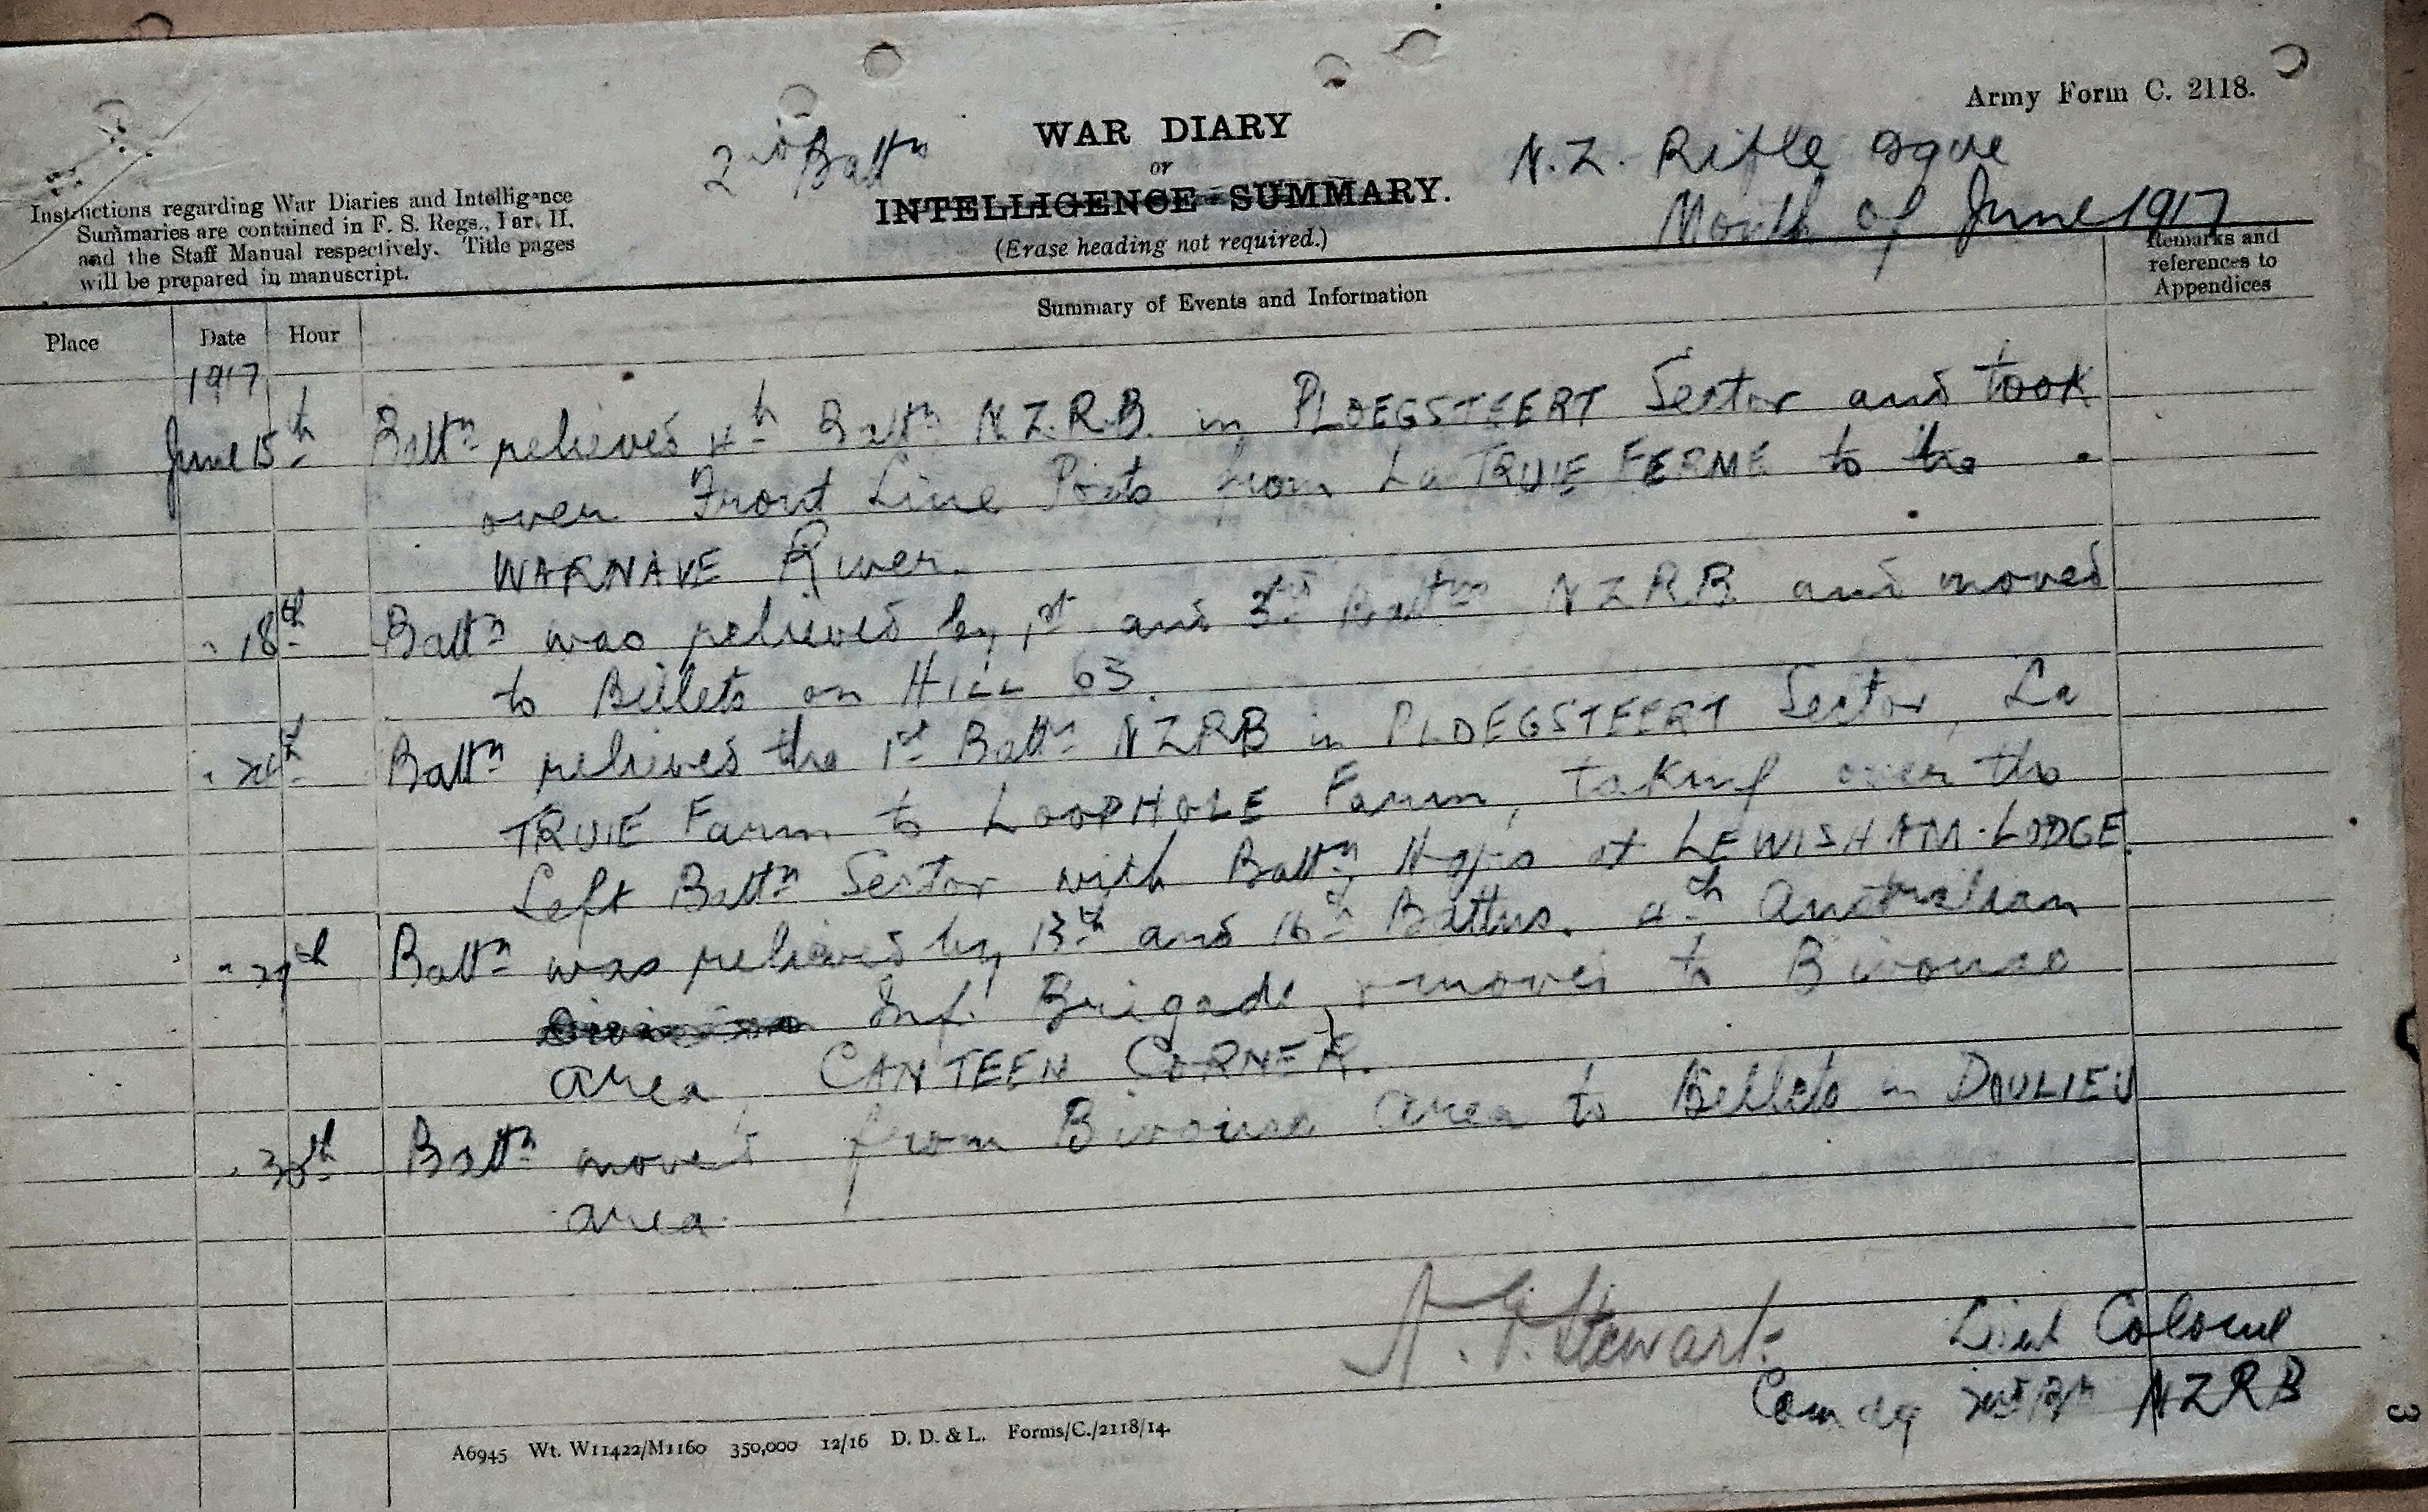 Army Form C. 2118.
2nd Battn
WAR DIARY
or
INTELLIGENCE SUMMARY.
(Erase heading not required.)
N.Z. Rifle Bgde
Month of June 1917
Instructions regarding War Diaries and Intelligence
Summaries are contained in F. S. Regs., Part II.
and the Staff Manual respectively. Title pages
will be prepared in manuscript.
Place Date Hour Summary of Events and Information Remarks and references to Appendices
1917
June 15th Battn relieved 4th Battn N.Z.R.B. in PLOEGSTEERT Sector and took
over Front Line Posts from La TRUIE FERME to the
WARNAVE River.
" 18th Battn was relieved by 1st and 3rd Battns NZRB and moved
to Billets on HILL 63.
Battn relieved the 1st Battn NZRB in PLOEGSTEERT Sector, La
TRUIE Farm to LOOPHOLE Farm, taking over the
Left Battn Sector with Battn Hqrs at LEWISHAM LODGE.
" 29th Battn was relieved by 13th and 16th Battns. 4th Australian
Division Inf. Brigade, & moved to Bivouac
area CANTEEN CORNER.
" 30th Battn moved from Bivouac area to Billets in DOULIEU
area.
Stewart
Lieut Colonel
Comdg 2nd Bn NZRB
3
A6945 Wt. W11422/M1160 350,000 12/16 D. D. & L. Forms/C./2118/14.